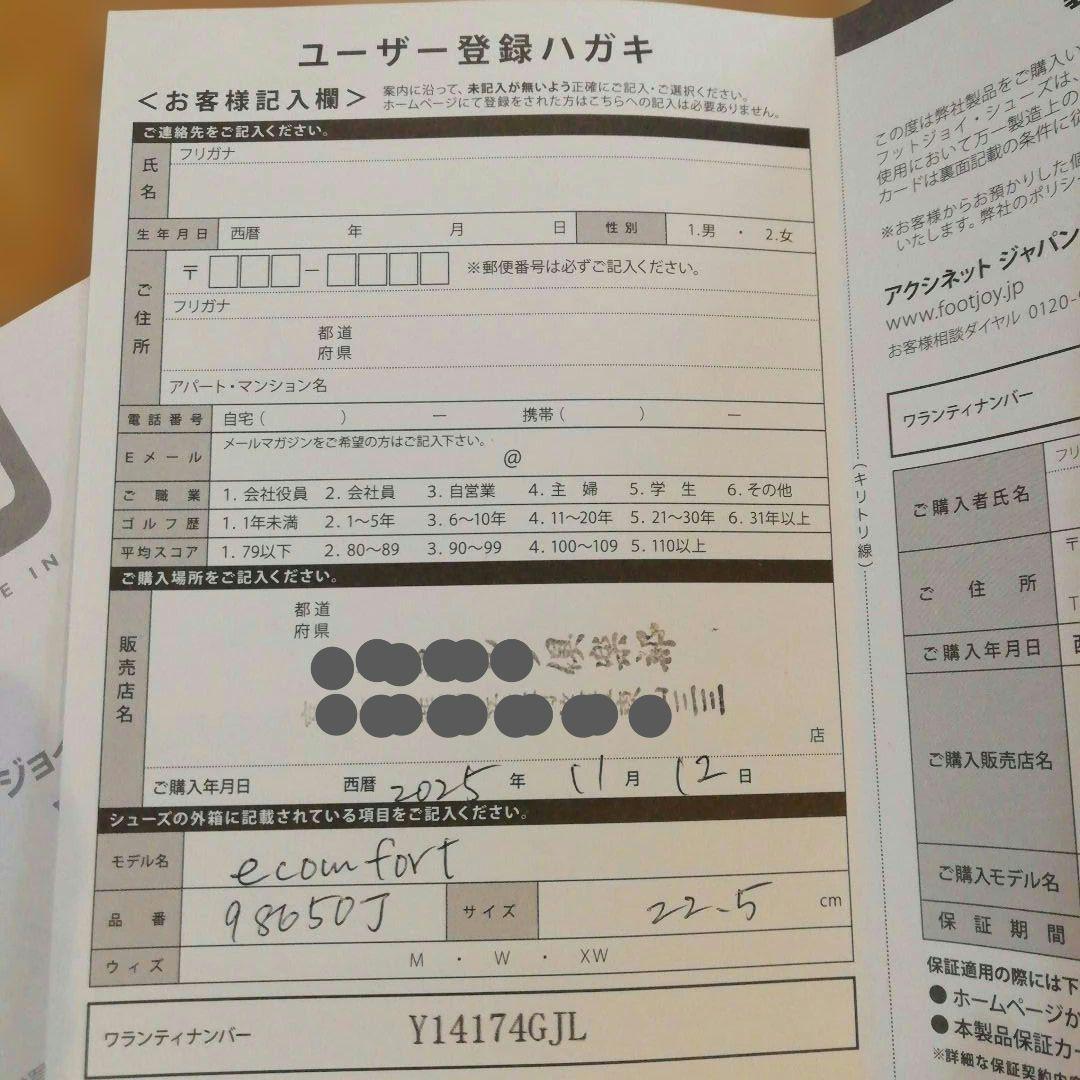 ユーザー登録ハガキ
＜お客様記入欄＞
案内に沿って、未記入が無いよう正確にご記入・ご選択ください。
ホームページにて登録をされた方はこちらへの記入は必要ありません。
ご連絡先をご記入ください。
氏名
フリガナ
生年月日 西暦 年 月 日 性別 1.男 ・ 2.女
ご住所
〒 － ※郵便番号は必ずご記入ください。
フリガナ
都道
府県
アパート・マンション名
電話番号 自宅（ ） － 携帯（ ） －
Eメール
メールマガジンをご希望の方はご記入下さい。
@
ご職業 1. 会社役員 2. 会社員 3. 自営業 4. 主 婦 5. 学 生 6. その他
ゴルフ歴 1. 1年未満 2. 1〜5年 3. 6〜10年 4. 11〜20年 5. 21〜30年 6. 31年以上
平均スコア 1. 79以下 2. 80〜89 3. 90〜99 4. 100〜109 5. 110以上
ご購入場所をご記入ください。
販売店名
都道
府県
倶楽部
店
ご購入年月日 西暦 2025 年 11 月 12 日
シューズの外箱に記載されている項目をご記入ください。
モデル名 ecomfort
品 番 98650J サイズ 22.5 cm
ウィズ M ・ W ・ XW
ワランティナンバー Y14174GJL
（キリトリ線）
この度は弊社製品をご購入い
フットジョイ・シューズは、
使用において万一製造上の
カードは裏面記載の条件に従
※お客様からお預かりした個
いたします。弊社のポリシー
アクシネット ジャパン
www.footjoy.jp
お客様相談ダイヤル 0120-
ワランティナンバー
ご購入者氏名
フリ
ご 住 所
〒
ご購入年月日
ご購入販売店名
ご購入モデル名
保 証 期 間
保証適用の際には下
●ホームページか
●本製品保証カー
※詳細な保証契約内
E IN
ジョイ